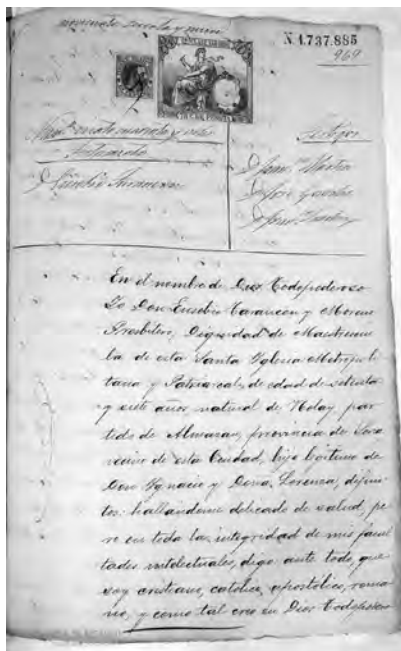 N. 1.737.885
969
Testigos
Testamento
D. Eusebio Tarancon
D. Juan Martin
D. Jose Gonzalez
En el nombre de Dios Todopoderoso
Yo Don Eusebio Tarancon y Moreno
Presbitero, Dignidad de Maestrescue
la de esta Santa Yglesia Metropoli
tana y Patriarcal, de edad de setenta
y siete años, natural de Nolay, par
tido de Almazan, provincia de Soria
vecino de esta Ciudad, hijo lejitimo de
Don Ygnacio y Doña Lorenza, difun
tos: hallandome delicado de salud, pe
ro en toda la integridad de mis facul
tades intelectuales, digo ante todo, que
soy cristiano, catolico, apostolico, roma
no, y como tal creo en Dios Todopodero